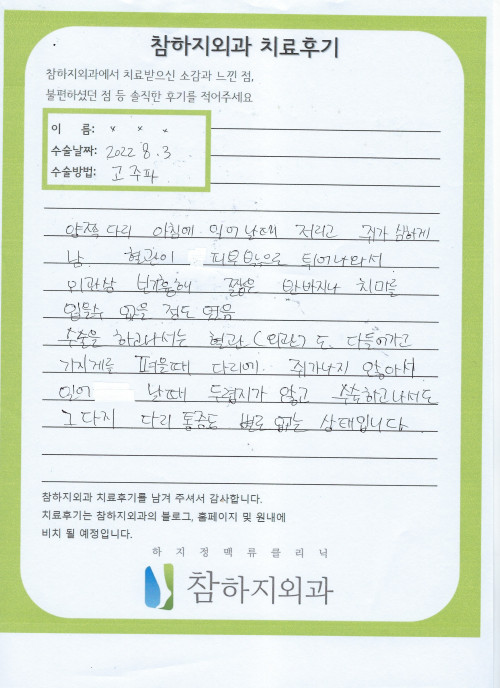 참하지외과 치료후기
참하지외과에서 치료받으신 소감과 느낀 점,
불편하셨던 점 등 솔직한 후기를 적어주세요
이 름: × × ×
수술날짜: 2022 8. 3
수술방법: 고주파
양쪽다리 아침에 일어날때 저리고 쥐가 심하게
남. 혈관이 피부밖으로 튀어나와서
외관상 보기흉해 짧은 반바지나 치마를
입을수 없을 정도 였음
수술을 하고나서는 혈관(외관)도 다들어가고
기지게를 펴을때 다리에 쥐가나지 않아서
일어 날때 두렵지가 않고 수술하고나서도
그다지 다리 통증도 별로 없는 상태입니다.
참하지외과 치료후기를 남겨 주셔서 감사합니다.
치료후기는 참하지외과의 블로그, 홈페이지 및 원내에
비치 될 예정입니다.
하지정맥류클리닉
참하지외과